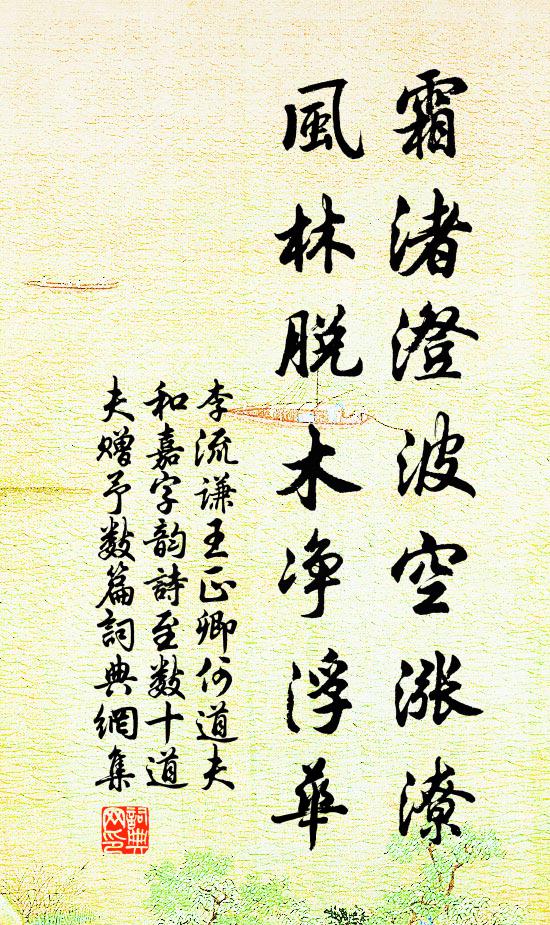 霜渚澄波空涨潦
風林脱木净浮華
李流谦王正卿何道夫
和嘉字韵詩至数十道
夫赠予数篇詞典網集
詞典网印